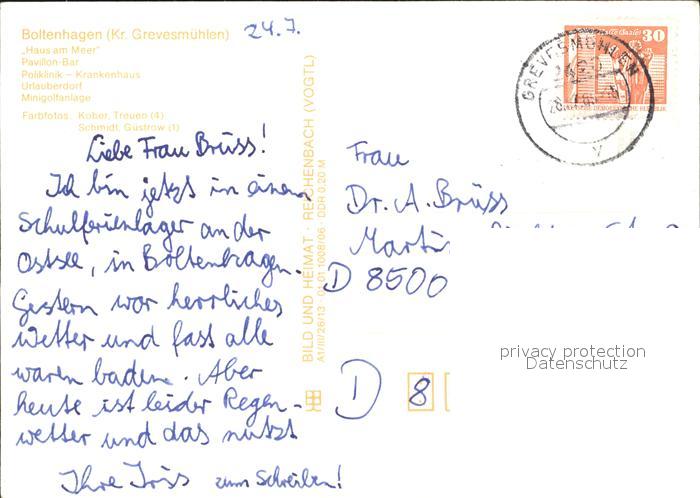 Boltenhagen (Kr. Grevesmühlen)
„Haus am Meer"
Pavillon-Bar
Poliklinik – Krankenhaus
Urlauberdorf
Minigolfanlage
Farbfotos: Kober, Treuen (4)
Schmidt, Güstrow (1)
24.7.
Liebe Frau Brüss!
Ich bin jetzt in einem
Schulferienlager an der
Ostsee, in Boltenhagen.
Gestern war herrliches
Wetter und fast alle
waren baden. Aber
heute ist leider Regen-
wetter und das nützt
Ihre Iris zum Schreiben!
BILD UND HEIMAT · REICHENBACH (VOGTL)
A1/III/26/13 01 01 1008/06 DDR 0,20 M
30
GREVESMÜHLEN
Frau
Dr. A. Brüss
D 8500
D 8
privacy protection
Datenschutz